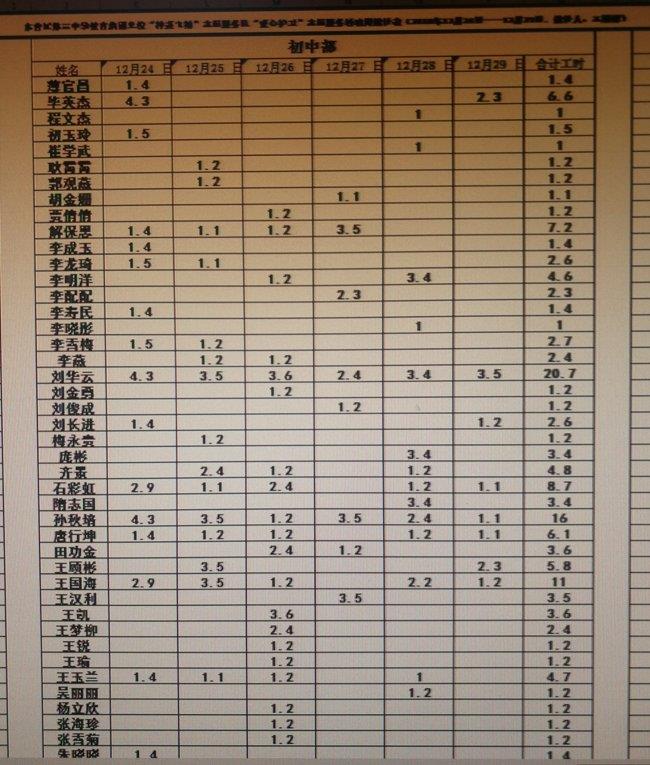 初中部
姓名 12月24 日 12月25 日 12月26 日 12月27 日 12月28 日 12月29 日 合计工时
薄官昌 1.4 1.4
毕英杰 4.3 2.3 6.6
程文杰 1 1
初玉玲 1.5 1.5
崔学武 1 1
耿霄霄 1.2 1.2
郭观燕 1.2 1.2
胡金姗 1.1 1.1
贾倩倩 1.2 1.2
解保恩 1.4 1.1 1.2 3.5 7.2
李成玉 1.4 1.4
李龙琦 1.5 1.1 2.6
李明洋 1.2 3.4 4.6
李配配 2.3 2.3
李寿民 1.4 1.4
李晓彤 1 1
李雪梅 1.5 1.2 2.7
李燕 1.2 1.2 2.4
刘华云 4.3 3.5 3.6 2.4 3.4 3.5 20.7
刘金勇 1.2 1.2
刘俊成 1.2 1.2
刘长进 1.4 1.2 2.6
梅永贵 1.2 1.2
庞彬 3.4 3.4
齐景 2.4 1.2 1.2 4.8
石彩虹 2.9 1.1 2.4 1.2 1.1 8.7
隋志国 3.4 3.4
孙秋培 4.3 3.5 1.2 3.5 2.4 1.1 16
唐行坤 1.4 1.2 1.2 1.2 1.1 6.1
田功金 2.4 1.2 3.6
王颐彬 3.5 2.3 5.8
王国海 2.9 3.5 1.2 2.2 1.2 11
王汉利 3.5 3.5
王凯 3.6 3.6
王梦柳 2.4 2.4
王锐 1.2 1.2
王瑜 1.2 1.2
王玉兰 1.4 1.1 1.2 1 4.7
吴丽丽 1.2 1.2
杨立欣 1.2 1.2
张海珍 1.2 1.2
张雪菊 1.2 1.2
朱晓晓 1.4 1.4